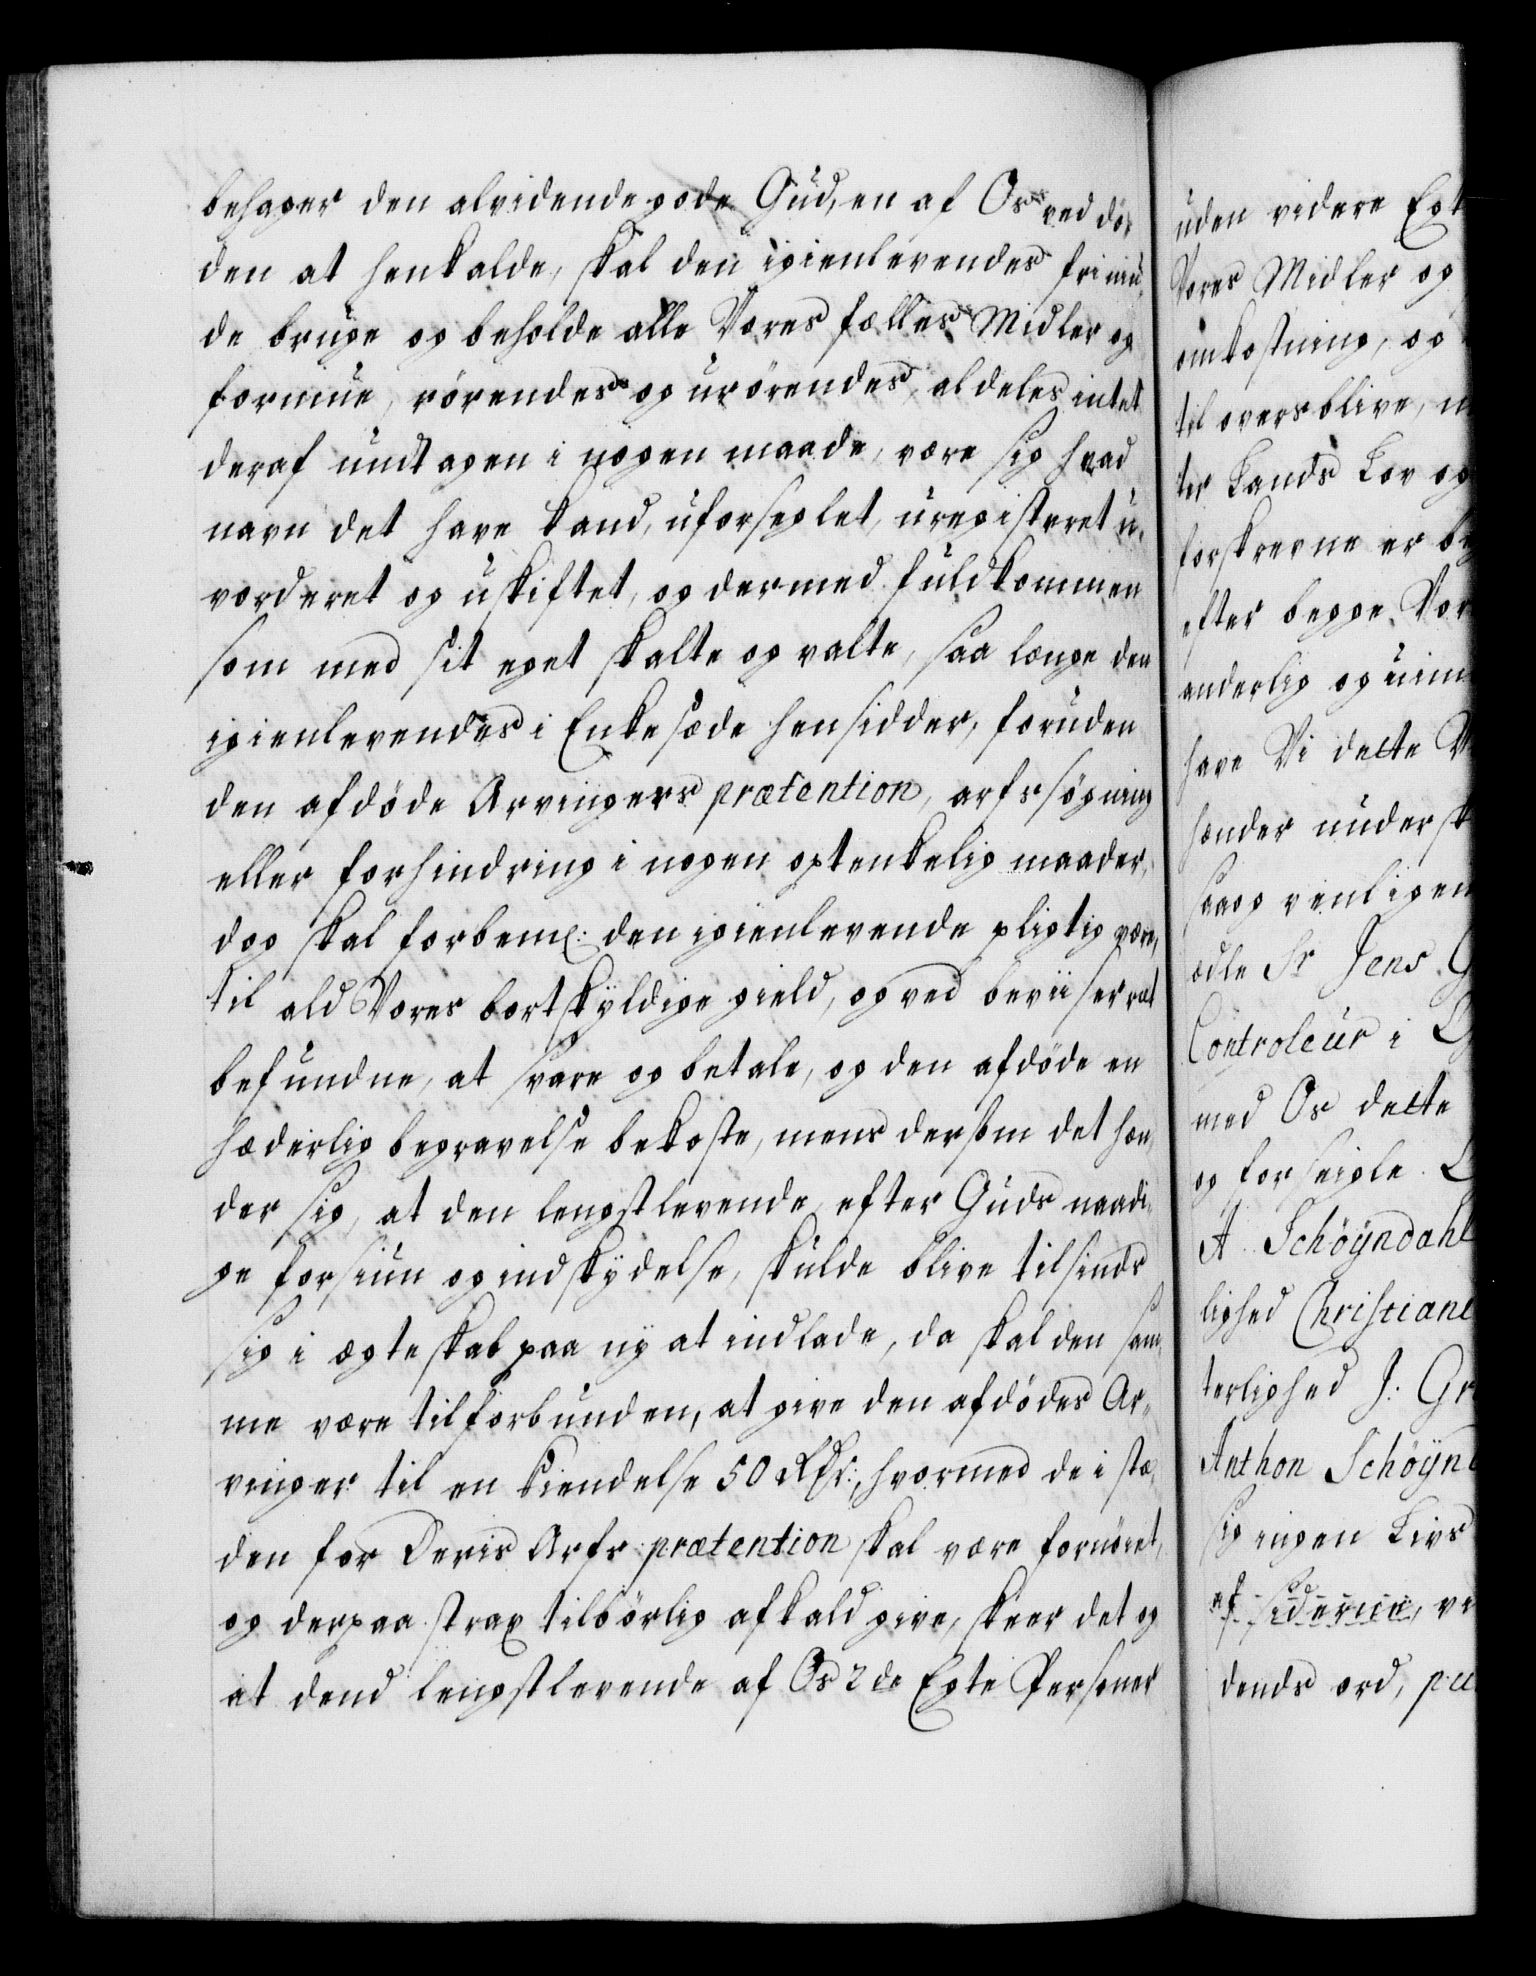 behager den alvidende gode Gud, en af Os ved dö-
den at henkalde, skal den igienlevendes frinü-
de bruge og beholde alle Vores fælles Midler og
formue, rörendes og urörendes, aldeles intet
deraf undtagen i nogen maade, være sig hvad
navn det have kand, uforseglet, uregisteret u-
vorderet og uskiftet, og dermed fuldkommen
som med sit eget skalte og valte, saa længe den
igienlevendes i Enkesæde hensidder, foruden
den afdöde Arvingers prætention, arfs sögning
eller forhindring i nogen optenkelig maader,
dog skal forbem: den igienlevende pligtig være,
til ald Vores bortskyldige gield, og ved beviiser ræt
befundne, at svare og betale, og den afdöde en
hæderlig begravelse bekoste, mens dersom det hæn-
der sig, at den lengstlevende efter Guds naadi-
ge forsiun og indskydelse, skulde blive tilsinds
sig i ægteskab paa ny at indlade, da skal den sam-
me være tilforbunden, at give den afdödes Ar-
vinger til en kiendelse 50 Rdr:, hvormed de i stæ-
den for Deris Arfs prætention skal være fornöiet,
og derpaa strax tilbörlig afkald give, skeer det og
at dend lengstlevende af Os 2de Egte Personer
uden videre Egt
Vores Midler og
omkostning, og
til overs blive, 
ter Lands Lov og
forskrevne er be
efter begge Vor
anderlig og uim
have Vi dette
hænder undersk
saa og venligen
ædle Sr Jens G
Controleur i
med Os dette
og forseigle. L
A Schöyndahl
lighed Christiane
terlighed J: Gr
Anthon Schöyn
sig ingen Livs
af Siderne, ve
dends ord,